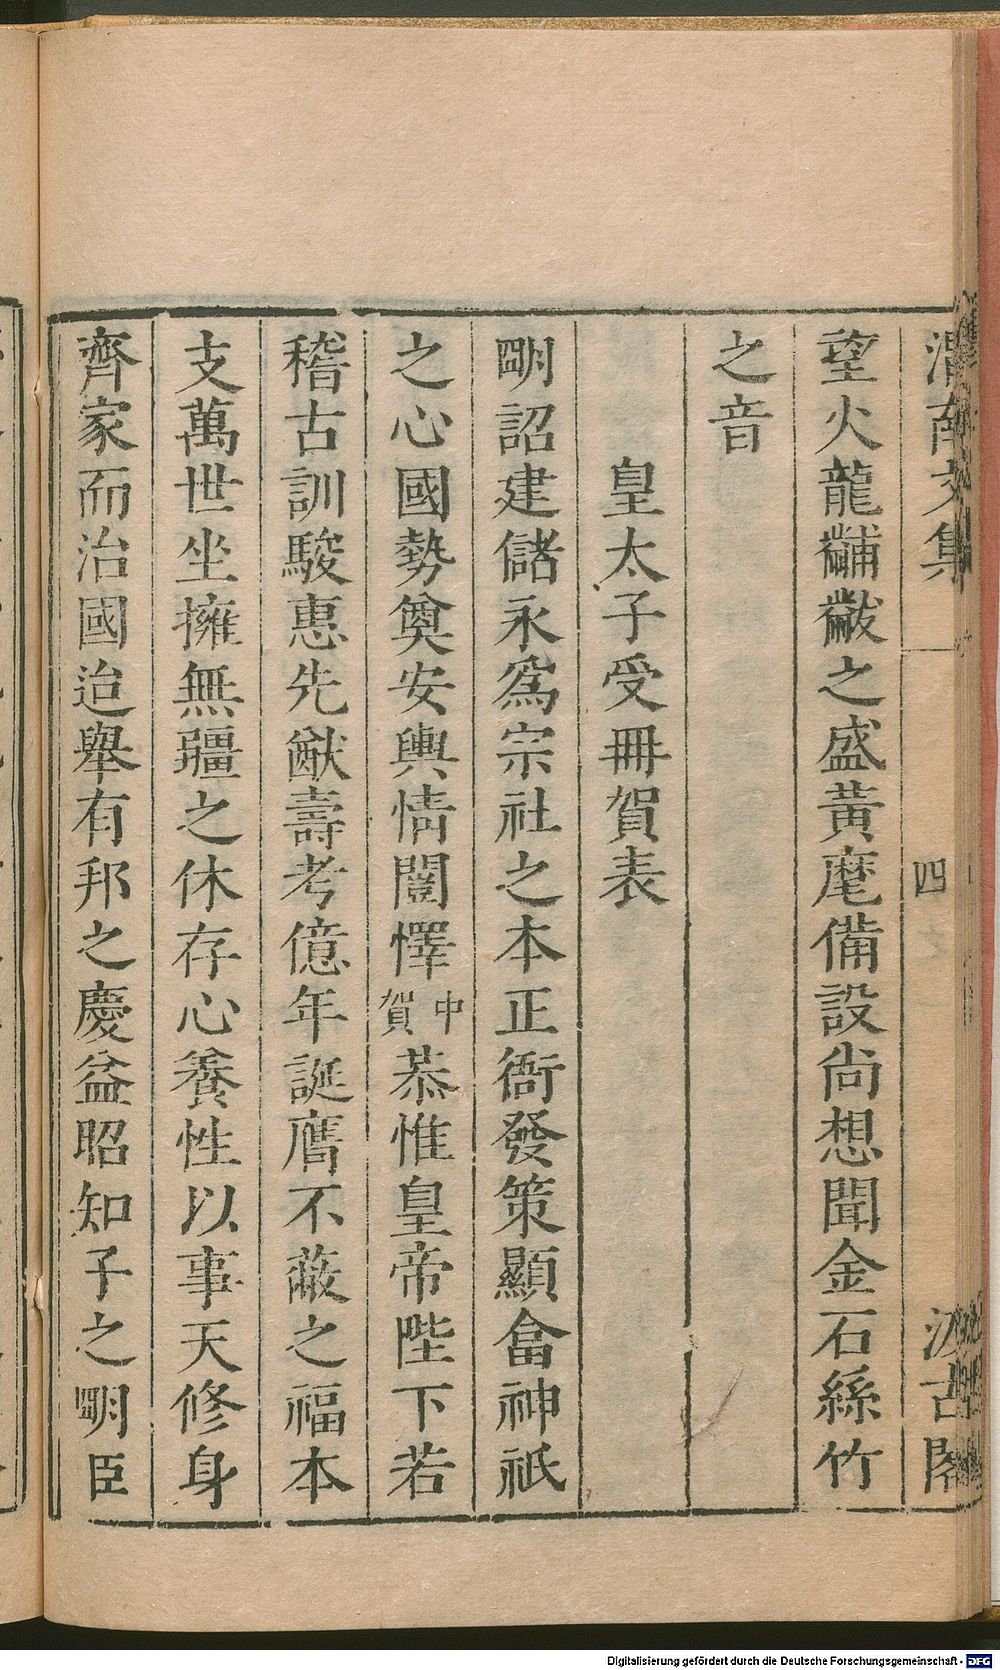 渭南文集 四 汲古閣
望火龍黼黻之盛黃麾備設尙想聞金石絲竹
之音
皇太子受冊賀表
朙詔建儲永爲宗社之本正衙發策顯畣神祇
之心國勢奠安輿情闓懌中賀恭惟皇帝陛下若
稽古訓駿惠先猷壽考億年誕膺不蔽之福本
支萬世坐擁無疆之休存心養性以事天修身
齊家而治國迨舉有邦之慶益昭知子之朙臣
Digitalisierung gefördert durch die Deutsche Forschungsgemeinschaft - DFG